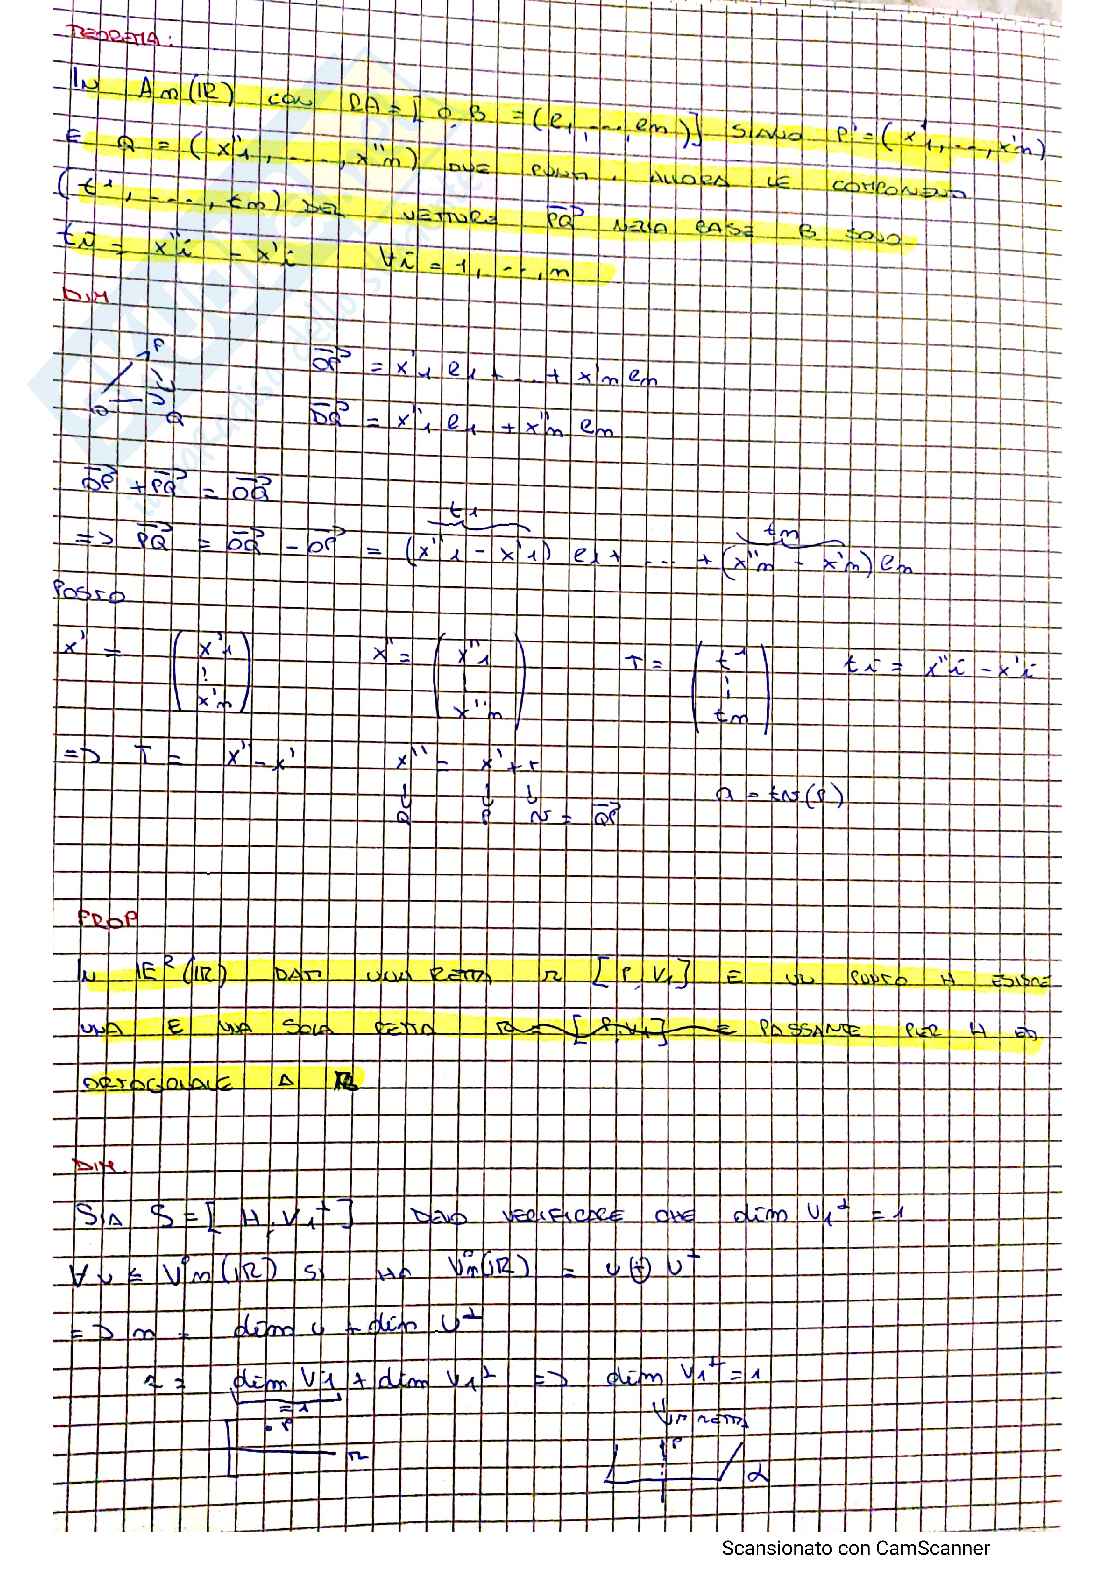 TEOREMA:
IN An(IR) CON RA = [O, B = (e1, ..., en)] SIANO P' = (x'1, ..., x'n)
E Q = (x''1, ..., x''n) DUE PUNTI, ALLORA LE COMPONENTI
(t1, ..., tn) DEL VETTORE PQ NELLA BASE B SONO
ti = x''i - x'i ∀i = 1, ..., n
DIM
P
O
Q
OP = x'1 e1 + ... + x'n en
OQ = x''1 e1 + x''n en
OP + PQ = OQ
t1 tn
=> PQ = OQ - OP = (x''1 - x'1) e1 + ... + (x''n - x'n) en
POSTO
x' = (x'1 ⋮ x'n) x'' = (x''1 ⋮ x''n) T = (t1 ⋮ tn) ti = x''i - x'i
=> T = x'' - x' x'' = x' + T
↓ ↓ ↓ Q = tv(P)
Q P v = QP
PROP
IN IE²(IR) DATI UNA RETTA r [P, V1] E UN PUNTO H ESISTE
UNA E UNA SOLA RETTA R = [P, V1] E PASSANTE PER H ED
ORTOGONALE A R
DIM.
SIA S = [H, V1⊥] DEVO VERIFICARE CHE dim V1⊥ = 1
∀ U ≤ V°n(IR) SI HA V°n(IR) = U ⊕ U⊥
=> n = dim U + dim U⊥
2 = dim V1 + dim V1⊥ => dim V1⊥ = 1
= 1
P
r
r RETTA
P
α
Scansionato con CamScanner